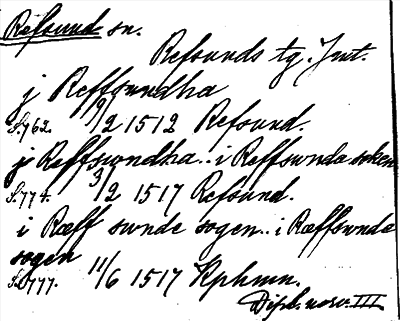 Refsund sn.
Refsunds tg. Jmt.
j Reffsundha
S.762. 9/2 1512 Refsund.
j Reffswndha .. i Reffswnda soken
S.774. 3/2 1517 Refsund.
i Ræff swnde sogen .. i Ræffswnda
sogen
S.777. 11/6 1517 Kphmn.
Dipl. norv. III